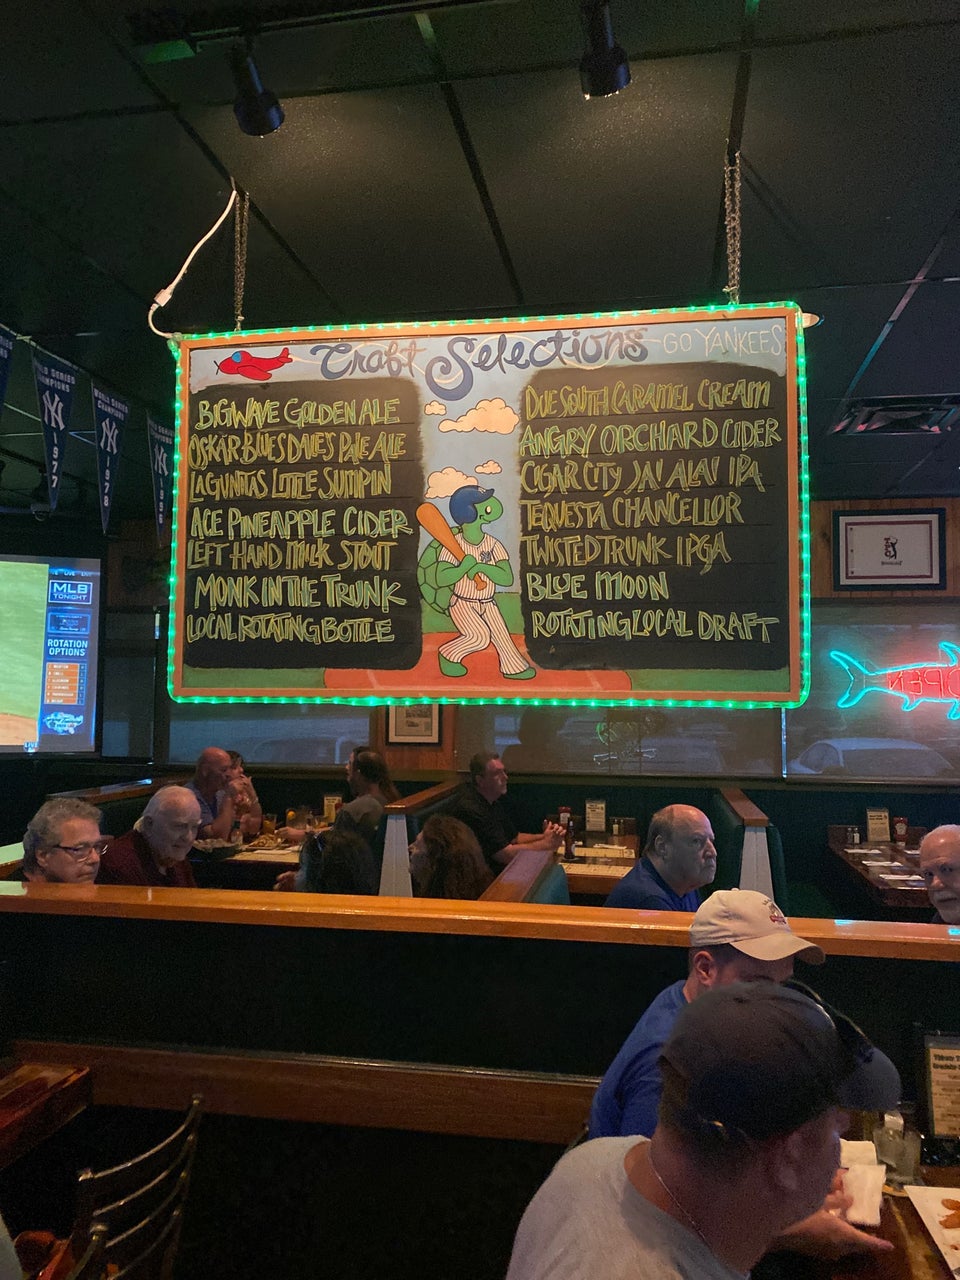 Craft Selections
GO YANKEES
BIG WAVE GOLDEN ALE
OSKAR BLUES DALE'S PALE ALE
LAGUNITAS LITTLE SUMPIN
ACE PINEAPPLE CIDER
LEFT HAND MILK STOUT
MONK IN THE TRUNK
LOCAL ROTATING BOTTLE
DUE SOUTH CARAMEL CREAM
ANGRY ORCHARD CIDER
CIGAR CITY JAI ALAI IPA
TEQUESTA CHANCELLOR
TWISTED TRUNK IPGA
BLUE MOON
ROTATING LOCAL DRAFT
WORLD SERIES
CHAMPIONS
NY
1977
WORLD SERIES
CHAMPIONS
NY
1978
1996
MLB
TONIGHT
ROTATION
OPTIONS
LIVE
OPEN